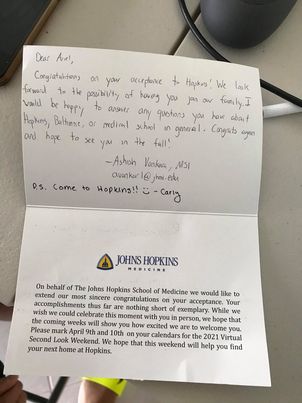 Dear Ariel,
Congratulations on your acceptance to Hopkins! We look
forward to the possibility of having you join our family. I
would be happy to answer any questions you have about
Hopkins, Baltimore, or medical school in general. Congrats again
and hope to see you in the fall!
- Ashish MS1
@jhmi.edu
P.S. Come to Hopkins!! - Carly
JOHNS HOPKINS
MEDICINE
On behalf of The Johns Hopkins School of Medicine we would like to
extend our most sincere congratulations on your acceptance. Your
accomplishments thus far are nothing short of exemplary. While we
wish we could celebrate this moment with you in person, we hope that
the coming weeks will show you how excited we are to welcome you.
Please mark April 9th and 10th on your calendars for the 2021 Virtual
Second Look Weekend. We hope that this weekend will help you find
your next home at Hopkins.